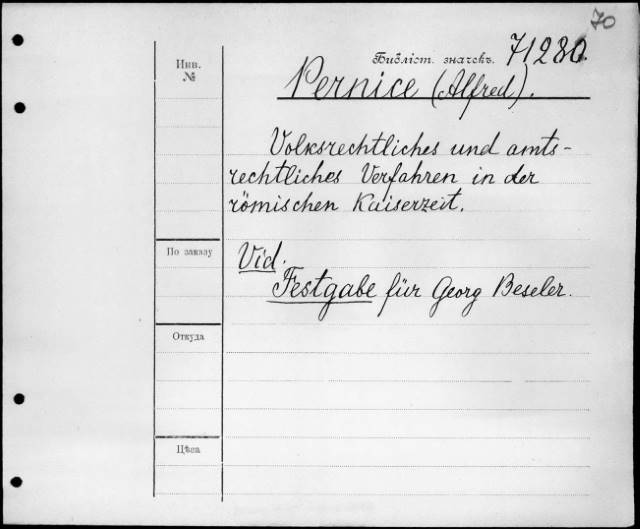 70
Инв.
№
Библіот. значекъ. 71280.
Pernice (Alfred).
Volksrechtliches und amts-
rechtliches Verfahren in der
römischen Kaiserzeit.
По заказу
Vid.
Festgabe für Georg Beseler.
Откуда
Цѣна